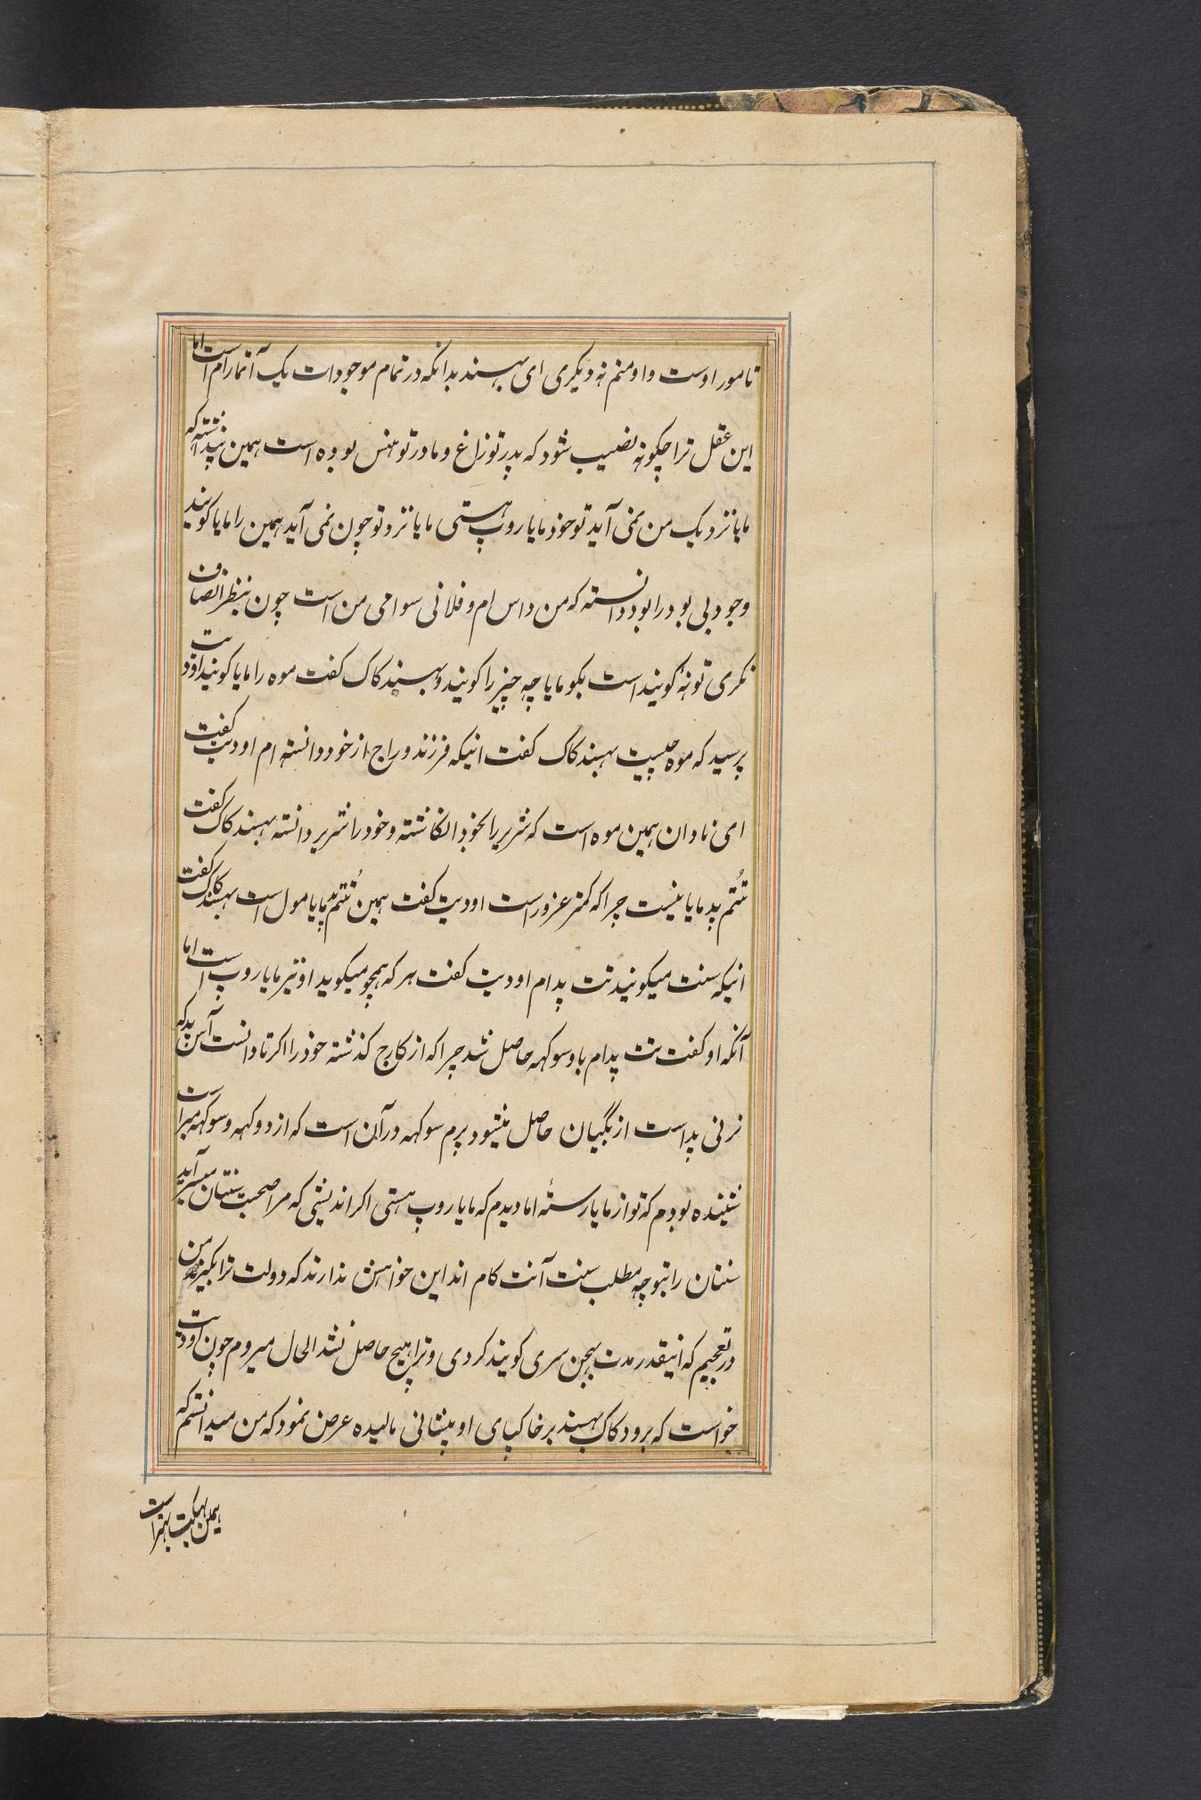 تا مور اوست و او منم نه دیکری ای بهسند بدانکه در تمام موجودات یک آتمارام است اما
این عقل ترا چکونه نصیب شود که پدر تو زاغ و مادر تو هنس بوده است همین پنداشته که
مایا نزدیک من نمی آید تو خود مایا روپ هستی مایا نزد تو چون نمی آید همین را مایا کویند
وجود بی بود را بود دانسته که من داس ام و فلانی سوامی من است چون بنظر انصاف
نکری تو نهٔ کوبند است بکو مایا چه چیز را کویند و بهسند کاک کفت موه را مایا کویند اودیت
پرسید که موه چیست بهسند کاک کفت اینکه فرزند و راج از خود دانسته ام اودیت کفت
ای نادان همین موه است که شریر را بخود انکاشته و خود را شریر دانسته بهسند کاک کفت
تُتم پد مایا نیست چرا که کمتر عزور است اودیت کفت همین تُتم پد مایا مول است بهسند کاک کفت
اینکه سنت میکویند تت پدام اودیت کفت هر که همچو میکوید او نیز مایا روپ است اما
آنکه او کفت تت پدام باو سوکهه حاصل شد چرا که از کارج کذشته خود را اکرتا دانست آن پد که
نرنی پد است از بکیان حاصل میشود پرم سوکهه در آن است که از دوکهه و سوکهه مبراست
شنیده بودم که تو از مایا رستهٔ اما دیدم که مایا روپ هستی اکر اندیشی که مرا صحبت سنتان میسر آید
سنتان را بتو چه مطلب سنت آنت کام اند این خواهش ندارند که دولت ترا بکیرند من
در تعجبم که اینقدر مدت بهجن سری کوبند کردی و ترا هیچ حاصل نشد الحال میروم چون اودیت
خواست که برود کاک بهسند بر خاکپای او پیشانی مالیده عرض نمود که من میدانستم که
همین بهکت بهتر است